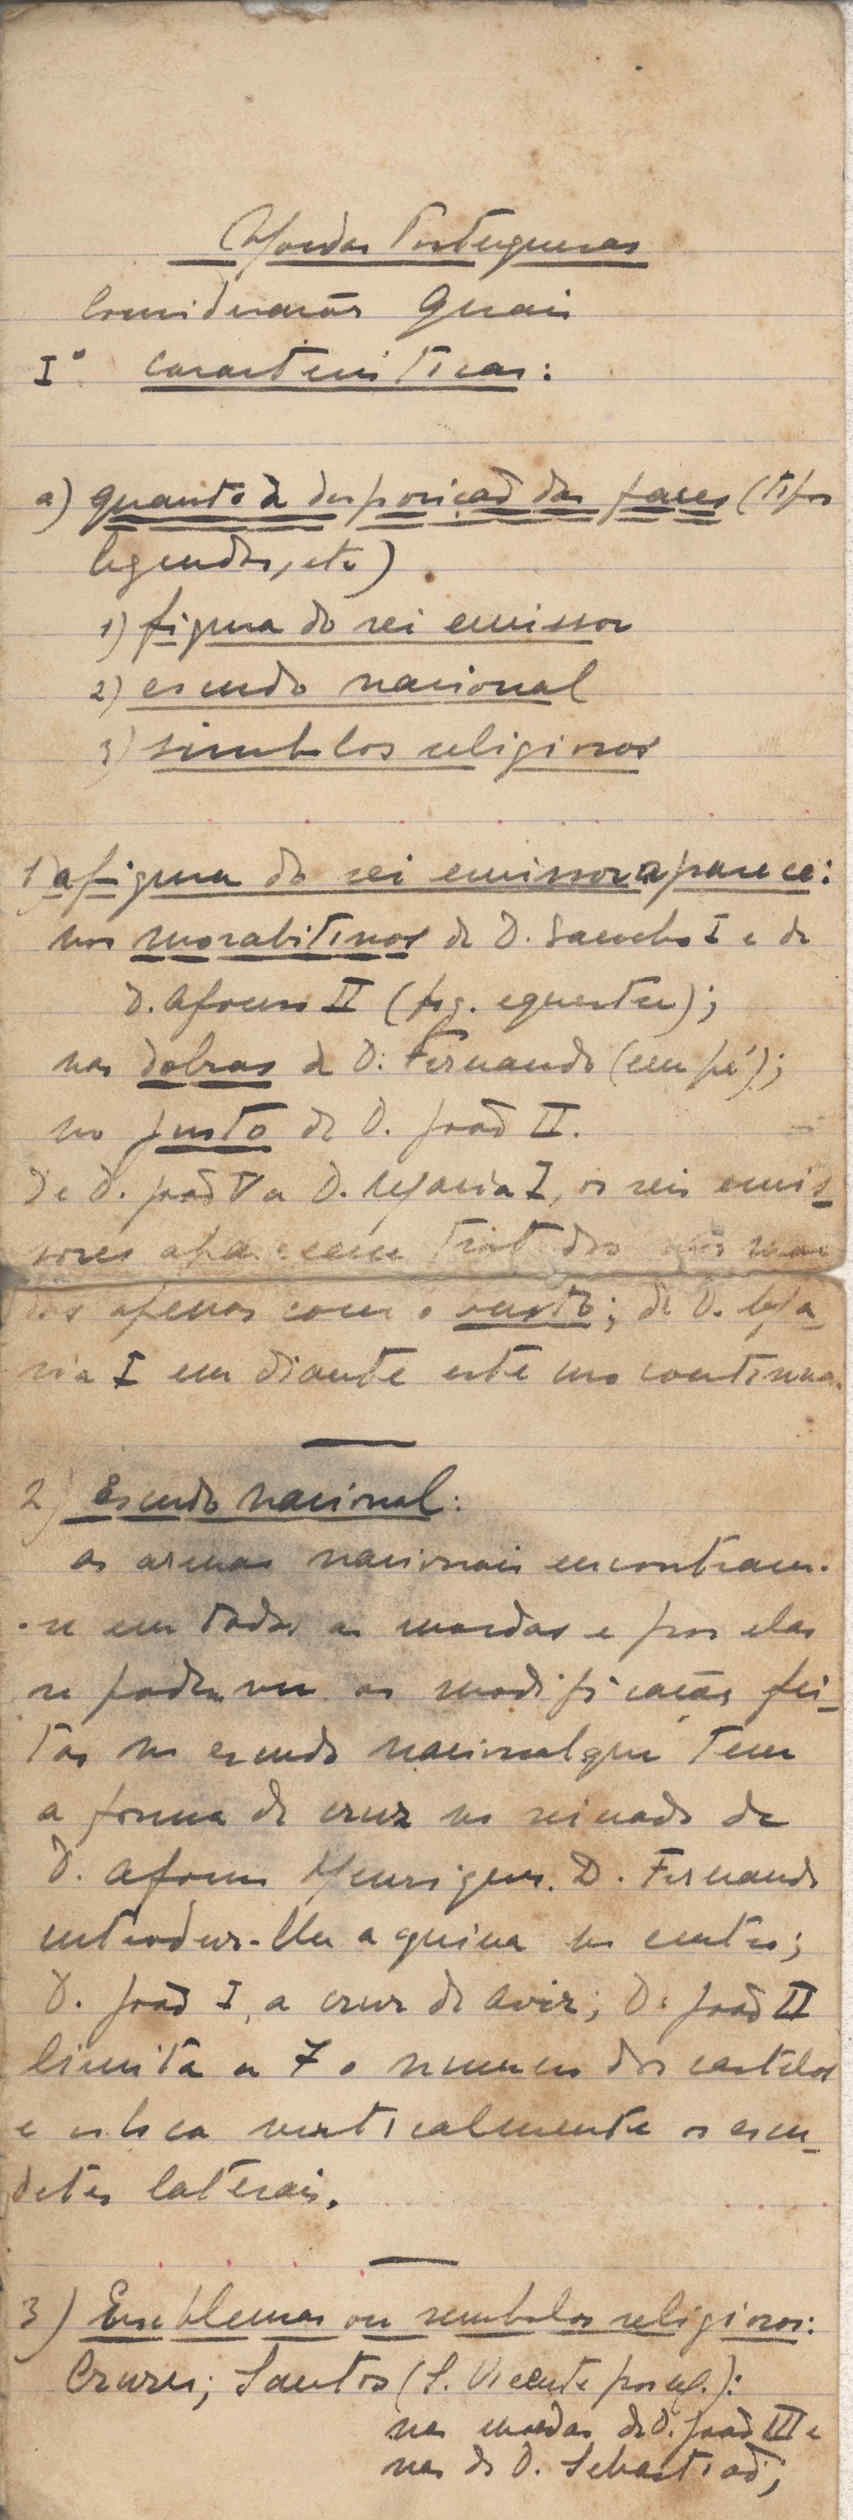 Moedas Portuguesas
Considerações Gerais
I° Caracteristicas:
a) quanto à desposição das faces (tipos
legendas, etc)
1) figura do rei emissor
2) escudo nacional
3) simbolos religiosos
1) a figura do rei emissor aparece:
nos morabitinos de D. Sancho I e de
D. Afonso II (fig. equestre);
nas dobras de D. Fernando (em pé);
no justo de D. João II.
De D. João V a D. Maria I, os reis emis-
sores aparecem
dos apenas com o busto; de D. Ma-
ria I em diante este uso continua.
2) Escudo nacional:
as armas nacionais encontram-
-se em todas as moedas e por elas
se podem ver as modificações fei-
tas no escudo nacional que tem
a forma de cruz no reinado de
D. Afonso Henriques. D. Fernando
introduz-lhe a quina no centro;
D. João I, a cruz de Aviz; D. João II
limita a 7 o numero dos castelos
e coloca verticalmente os escu-
detes laterais.
3) Emblemas ou simbolos religiosos:
Cruzes; Santos (S. Vicente por ex.):
nas moedas de D. João III e
nas de D. Sebastião;